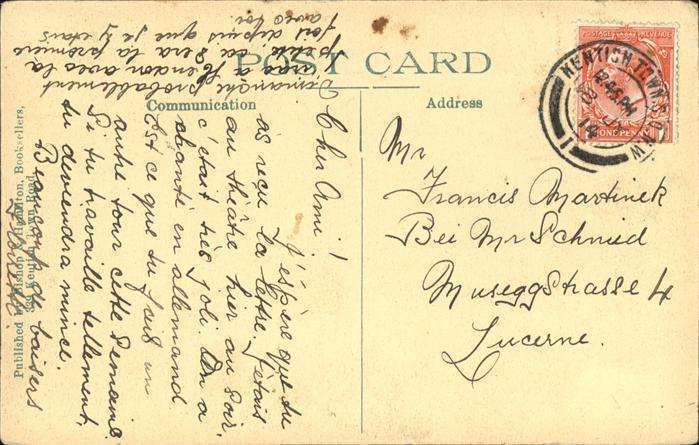 POST CARD
Communication
Address
Cher Ami!
J'espère que tu
as reçu la lettre. J'étais
au théâtre hier au soir.
c'était très joli. On a
chanté en allemand
Est ce que tu fais un
autre tour cette semaine
Si tu travaille tellement,
tu deviendra mince.
Beaucoup de baisers
Dimanche probablement
à Hendon avec la
petite ca sera la première
fois depuis que je y étais
avec toi
Published by Bishop Hamilton, Booksellers,
Kentish Town Road
Mr
Francis Martinek
Bei Mr Schmied
Museggstrasse 4
Lucerne.
POSTAGE REVENUE
ONE PENNY
KENTISH TOWN S.O. N.W.